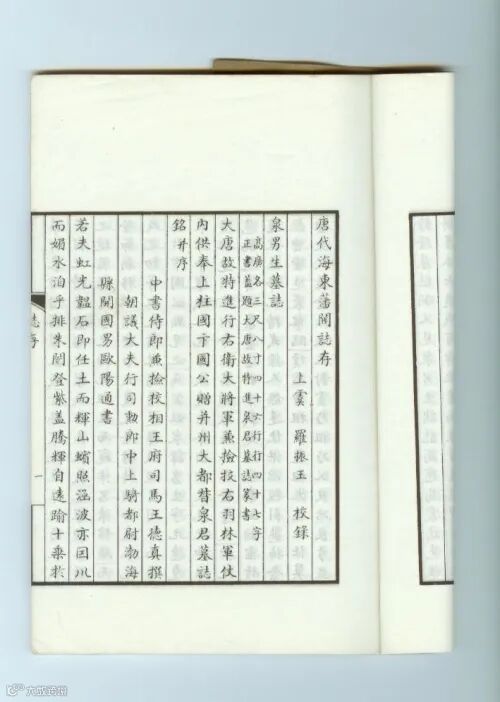 唐代海東藩閥誌存
上虞 羅振玉 校錄
泉男生墓誌
高廣各三尺八寸四十六行行四十七字
正書蓋題大唐故特進泉君墓誌篆書
大唐故特進行右衛大將軍兼撿挍右羽林軍仗
內供奉上柱國卞國公贈并州大都督泉君墓誌
銘并序
中書侍郎兼撿挍相王府司馬王德真撰
朝議大夫行司勳郎中上騎都尉渤海
縣開國男歐陽通書
若夫虹光韞石即任土而輝山蠙照涵波亦因川
而媚水洎乎排朱閣登紫蓋騰輝自遠踰十乘於
誌存
一
大成跨境